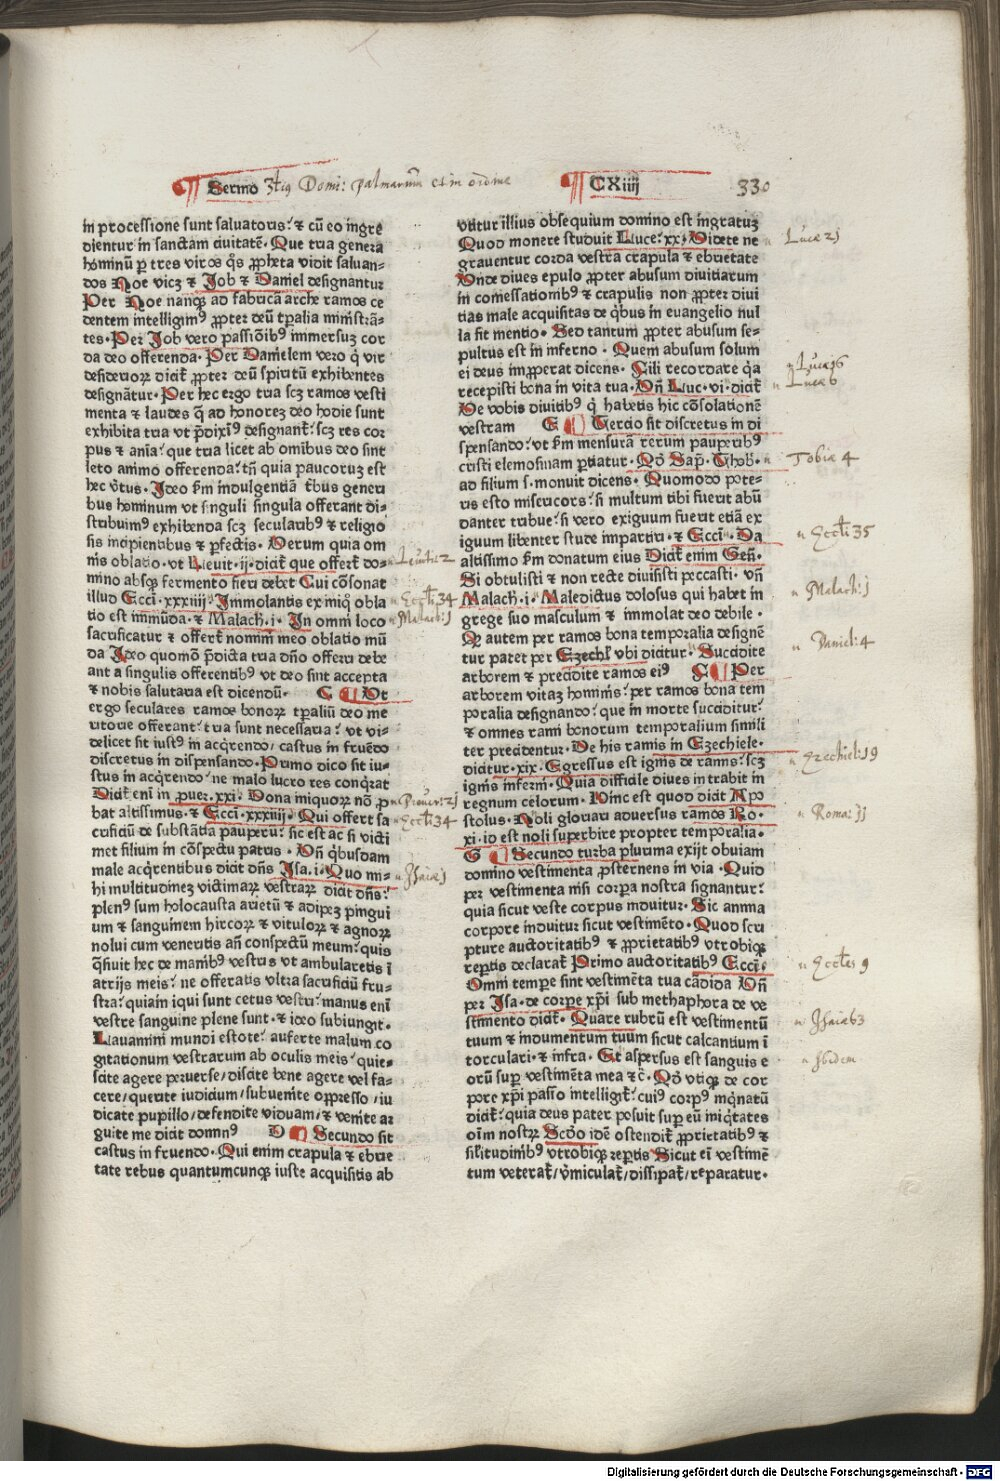 Sermo 3tius Domi: palmarum et in ordine CXiiij 330
in processione sunt saluatoris? ⁊ cū eo ingre
dientur in sanctam ciuitatē. Que tria genera
hominū p̄ tres viros q̄s ꝓpheta vidit saluan-
dos Noe vicz ⁊ Job ⁊ Daniel designantur
Per Noe nanq̄ ad fabricā arche ramos ce
dentem intelligimꝰ ꝓpter deū tp̄alia ministrā-
tes. Per Job vero passiōibꝰ immersuz cor
da deo offerenda. Per Danielem vero q̄ vir
desiderioꝝ dicit̄ ꝓpter deū spiritū exhibentes
designātur. Per hec ergo tria scz ramos vesti
menta ⁊ laudes q̄ ad honorez deo hodie sunt
exhibita tria vt p̄dixīꝰ designant̄? scz res cor
pus ⁊ anīa? que tria licet ab omnibus deo sint
leto animo offerenda? tn̄ quia paucoruz est
hec v̄tus. Ideo s̄m indulgentiā t̄bus generi
bus hominum vt singuli singula offerant di-
stribuimꝰ exhibenda scz secularibꝰ ⁊ religio
sis incipientibus ⁊ p̄fectis. Verum quia om
nis oblatio. vt Leuit. ij. dicit̄ que offert̄ do-
mino absq̄ fermento fieri debet Cui cōsonat
illud Ecci. xxxiiij. Immolantis ex miq̄ obla
tio est immūda. ⁊ Malach. i. In omni loco
sacrificatur ⁊ offert̄ nomini meo oblatio mū
da Ideo quomō p̄dicta tria dn̄o offerri debe
ant a singulis offerentibꝰ vt deo sint accepta
⁊ nobis salutaria est dicendū. C Ut
ergo seculares ramos bonoꝝ tp̄aliū deo me
ritorie offerant? tria sunt necessaria? vt vi-
delicet sit iustꝰ in acq̄rendo/ castus in fruēdo
discretus in dispensando. Primo dico sit iu-
stus in acq̄rendo? ne malo lucro res conq̄rat
Dicit̄ eni in ꝓuer. xxi. Dona iniquoꝝ nō ꝓ
bat altissimus. ⁊ Ecci. xxxiiij. Qui offert sa
crificiū de substātia pauperū? sic est ac si victi
met filium in cōspectu patris. Un̄ q̄busdam
male acq̄rentibus dicit dn̄s Isa. i. Quo mi-
hi multitudinez victimaꝝ vestraꝝ dicit dn̄s?
plenꝰ sum holocausta arietū ⁊ adipez pingui
um ⁊ sanguinem hircoꝝ ⁊ vituloꝝ ⁊ agnoꝝ
nolui cum veneritis an̄ conspectū meum? quis
q̄siuit hec de manibꝰ vestris vt ambularetis ī
atrijs meis? ne offeratis vltra sacrificiū fru-
stra? quiam iqui sunt cetus vestri? manus enī
vestre sanguine plene sunt. ⁊ ideo subiungit.
Lauamini mundi estote? auferte malum co
gitationum vestrarum ab oculis meis? quie-
scite agere peruerse/ discite bene agere vel fa-
cere/ querite iudicium/ subuenite oppresso/ iu
dicate pupillo/ defendite viduam/ ⁊ venite ar
guite me dicit dominꝰ D Secundo sit
castus in fruendo. Qui enim crapula ⁊ ebrie
tate rebus quantumcunq̄ iuste acquisitis ab
Leuitic: 2
Eccli: 34
Malach: j
Prouer: 2j
Eccli: 34
Isaiæ j
vtitur illius obsequium domino est ingratuz
Quod monere studuit Luce. xxi. Videte ne
grauentur corda vestra crapula ⁊ ebrietate
Unde diues epulo ꝓpter abusum diuitiarum
in comessationibꝰ ⁊ crapulis non ꝓpter diui
tias male acquisitas de q̄bus in euangelio nul
la fit mentio. Sed tantum ꝓpter abusum se-
pultus est in inferno. Quem abusum solum
ei deus imꝓperat dicens. Fili recordare q̄a
recepisti bona in vita tua. Un̄ Luc. vi. dicit̄
Ve vobis diuitibꝰ q̄ habetis hic cōsolationē
vestram E Tercio sit discretus in di
spensando? vt s̄m mensurā rerum pauperibꝰ
cristi elemosinam p̄tiatur. Qō Sap. Thob.
ad filium s. monuit dicens. Quomodo pote-
ris esto misericors? si multum tibi fuerit abū
danter tribue? si vero exiguum fuerit etiā ex
iguum libenter stude impartiri. ⁊ Ecci. Da
altissimo s̄m donatum eius Dicit̄ enim Gen̄.
Si obtulisti ⁊ non recte diuisisti peccasti. vn̄
Malach. i. Maledictus dolosus qui habet in
grege suo masculum ⁊ immolat deo debile.
Qr̄ autem per ramos bona temporalia designē
tur patet per Ezechl̄ vbi dicitur. Succidite
arborem ⁊ precidite ramos eiꝰ F Per
arborem vitaz hominis? per ramos bona tem
poralia designando? que in morte succiditur?
⁊ omnes rami bonorum temporalium simili
ter precidentur. De his ramis in Ezechiele.
dicitur. xix. Egressus est ignis de ramis? scz
ignis inferni. Quia difficile diues intrabit in
regnum celorum. Hinc est quod dicit Apo
stolus. Noli gloriari aduersus ramos Ro.
xi. id est noli superbire propter temporalia.
G Secundo turba plurima exijt obuiam
domino vestimenta ꝓsternens in via. Quid
per vestimenta nisi corpora nostra signantur?
quia sicut veste corpus induitur. Sic anima
corpore induitur sicut vestimēto. Quod scri
pture auctoritatibꝰ ⁊ ꝓprietatibꝰ vtrobiq̄
repertis declarat̄ Primo auctoritatibꝰ Ecci.
Omni tempore sint vestimēta tua cādida Un̄
per Isa. de corpe xp̄i sub methaphora de ve
stimento dicit̄. Quare rubrū est vestimentū
tuum ⁊ indumentum tuum sicut calcantium ī
torculari. ⁊ infra. Et aspersus est sanguis e
orū sup̄ vestimēta mea ⁊c̄. Qō vtiq̄ de cor
pore xp̄i passo intelligit̄? cuiꝰ corpꝰ inq̄natū
dicit̄? quia deus pater posuit sup̄ eū iniq̄tates
oīm nostꝝ Scdo idē ostendit̄ ꝓprietatibꝰ ⁊
sil̄itudinibꝰ vtrobiq̄ rep̄tis Sicut eī vestimē
tum veterat̄/ v̄miculat̄/ dissipat̄/ reparatur.
Lucæ 2j
Lucæ 16
Lucæ 6
Tobiæ 4
Eccli 35
Malach: j
Daniel: 4
Ezechiel: 19
Roma: jj
Eccles 9
Isaiæ 63
Ibidem
Digitalisierung gefördert durch die Deutsche Forschungsgemeinschaft - DFG